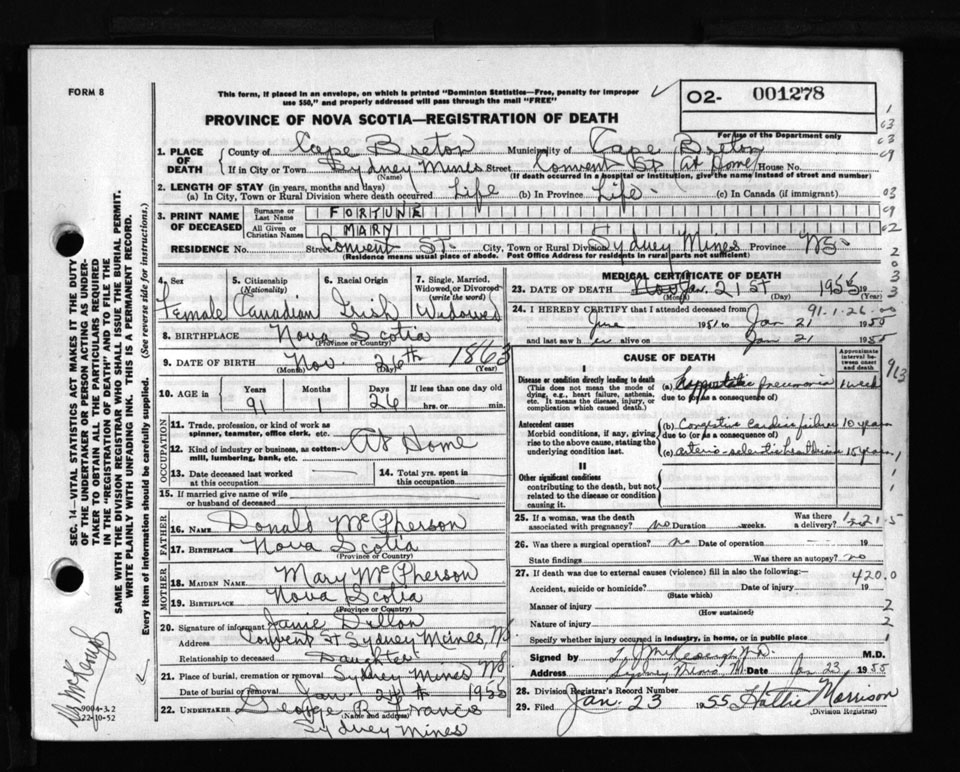 FORM 8
This form, if placed in an envelope, on which is printed "Dominion Statistics—Free, penalty for improper
use $50," and properly addressed will pass through the mail "FREE"
02- 001278
For use of the Department only
PROVINCE OF NOVA SCOTIA—REGISTRATION OF DEATH
1. PLACE OF DEATH
County of Cape Breton Municipality of Cape Breton
If in City or Town Sydney Mines Street Convent St (At Home) House No.
(Name) (If death occurred in a hospital or institution, give the name instead of street and number)
2. LENGTH OF STAY (in years, months and days)
(a) In City, Town or Rural Division where death occurred Life (b) In Province Life - (c) In Canada (if immigrant)
3. PRINT NAME OF DECEASED
Surname or Last Name FORTUNE
All Given or Christian Names MARY
RESIDENCE No. Street Convent St. City, Town or Rural Division Sydney Mines Province NS-
(Residence means usual place of abode. Post Office Address for residents in rural parts not sufficient)
4. Sex Female
5. Citizenship (Nationality) Canadian
6. Racial Origin Irish
7. Single, Married, Widowed or Divorced (write the word) Widowed
8. BIRTHPLACE Nova Scotia
(Province or Country)
9. DATE OF BIRTH Nov 26th 1863
(Month) (Day) (Year)
10. AGE in Years 91 Months 1 Days 26 If less than one day old
hrs. or min.
OCCUPATION
11. Trade, profession, or kind of work as spinner, teamster, office clerk, etc.
12. Kind of industry or business, as cotton-mill, lumbering, bank, etc. At Home
13. Date deceased last worked at this occupation
14. Total yrs. spent in this occupation
15. If married give name of wife or husband of deceased
FATHER
16. NAME Donald McPherson
17. BIRTHPLACE Nova Scotia
(Province or Country)
MOTHER
18. MAIDEN NAME Mary McPherson
19. BIRTHPLACE Nova Scotia
(Province or Country)
20. Signature of informant Janie Dillon
Address Convent St Sydney Mines, NS
Relationship to deceased Daughter
21. Place of burial, cremation or removal Sydney Mines NS
Date of burial or removal Jan. 24th 1955
22. UNDERTAKER George B. Francis
(Name and address)
Sydney Mines
MEDICAL CERTIFICATE OF DEATH
23. DATE OF DEATH Jan. 21st 1955
(Month) (Day) (Year)
24. I HEREBY CERTIFY that I attended deceased from 91-1-26-00
June 1951 to Jan 21 1955
and last saw her alive on Jan 21 1955
CAUSE OF DEATH
Approximate interval between onset and death
I
Disease or condition directly leading to death
(This does not mean the mode of dying, e.g., heart failure, asthenia, etc. It means the disease, injury, or complication which caused death.)
(a) Hypostatic pneumonia 1 week
due to (or as a consequence of)
Antecedent causes
Morbid conditions, if any, giving rise to the above cause, stating the underlying condition last.
(b) Congestive cardiac failure 10 years
due to (or as a consequence of)
(c) arterio-sclerotic heart disease 15 years
II
Other significant conditions
contributing to the death, but not related to the disease or condition causing it
25. If a woman, was the death associated with pregnancy? no Duration weeks. Was there a delivery?
26. Was there a surgical operation? no Date of operation 19
State findings Was there an autopsy? no
27. If death was due to external causes (violence) fill in also the following:— 420.0
Accident, suicide or homicide? Date of injury 19
(State which)
Manner of injury
(How sustained)
Nature of injury
Specify whether injury occurred in industry, in home, or in public place
Signed by M.D.
Address Sydney Mines Date Jan 23 1955
28. Division Registrar's Record Number
29. Filed Jan. 23 1955 Hattie Morrison
(Division Registrar)
SEC. 14—VITAL STATISTICS ACT MAKES IT THE DUTY
OF THE UNDERTAKER OR PERSON ACTING AS UNDER-
TAKER TO OBTAIN ALL THE PARTICULARS REQUIRED
IN THE "REGISTRATION OF DEATH" AND TO FILE THE
SAME WITH THE DIVISION REGISTRAR WHO SHALL ISSUE THE BURIAL PERMIT.
WRITE PLAINLY WITH UNFADING INK. THIS IS A PERMANENT RECORD.
Every item of information should be carefully supplied. (See reverse side for instructions.)
9004-3.2
22-10-52